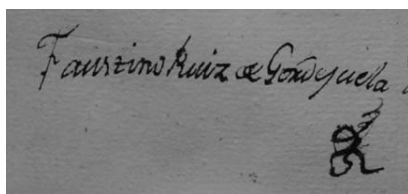 Faustino Ruiz de Gordejuela